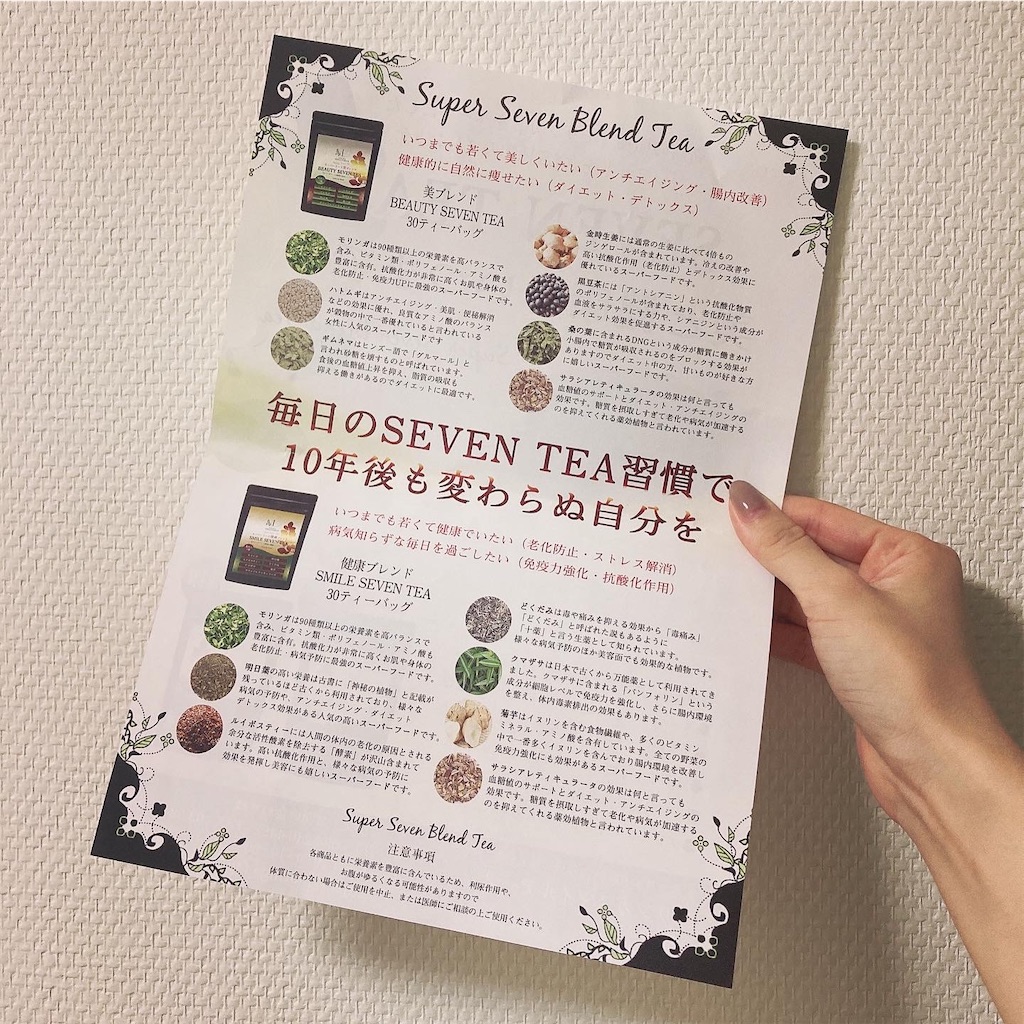 Super Seven Blend Tea
いつまでも若くて美しくいたい（アンチエイジング・腸内改善）
健康的に自然に痩せたい（ダイエット・デトックス）
BEAUTY SEVEN
美ブレンド
BEAUTY SEVEN TEA
30ティーバッグ
モリンガは90種類以上の栄養素を高バランスで
含み、ビタミン類・ポリフェノール・アミノ酸も
豊富に含有。抗酸化力が非常に高くお肌や身体の
老化防止・免疫力UPに最強のスーパーフードです。
ハトムギはアンチエイジング・美肌・便秘解消
などの効果に優れ、良質なアミノ酸のバランス
が穀物の中で一番優れていると言われている
女性に人気のスーパーフードです
ギムネマはヒンズー語で「グルマール」と
言われ砂糖を壊すものと呼ばれています。
食後の血糖値上昇を抑え、脂質の吸収も
抑える働きがあるのでダイエットに最適です。
金時生姜には通常の生姜に比べて4倍もの
ジンゲロールが含まれています。冷えの改善や
高い抗酸化作用（老化防止）とデトックス効果に
優れているスーパーフードです。
黒豆茶には「アントシアニン」という抗酸化物質
のポリフェノールが含まれており、老化防止や
血液をサラサラにする力や、シアニジンという成分が
ダイエット効果を促進するスーパーフードです。
桑の葉に含まれるDNGという成分が糖質に働きかけ
小腸内で糖質が吸収されるのをブロックする効果が
ありますのでダイエット中の方、甘いものが好きな方
に嬉しいスーパーフードです。
サラシアレティキュラータの効果は何と言っても
血糖値のサポートとダイエット・アンチエイジングの
効果です。糖質を摂取しすぎて老化や病気が加速する
のを抑えてくれる薬効植物と言われています。
毎日のSEVEN TEA習慣で
10年後も変わらぬ自分を
いつまでも若くて健康でいたい（老化防止・ストレス解消）
病気知らずな毎日を過ごしたい（免疫力強化・抗酸化作用）
SMILE SEVEN
健康ブレンド
SMILE SEVEN TEA
30ティーバッグ
モリンガは90種類以上の栄養素を高バランスで
含み、ビタミン類・ポリフェノール・アミノ酸も
豊富に含有。抗酸化力が非常に高くお肌や身体の
老化防止・病気予防に最強のスーパーフードです。
明日葉の高い栄養は古書に「神秘の植物」と記載が
残っているほど古くから利用されており、様々な
病気の予防や、アンチエイジング・ダイエット
デトックス効果がある人気の高いスーパーフードです。
ルイボスティーには人間の体内の老化の原因とされる
余分な活性酸素を除去する「酵素」が沢山含まれて
います。高い抗酸化作用と、様々な病気の予防に
効果を発揮し美容にも嬉しいスーパーフードです。
どくだみは毒や痛みを抑える効果から「毒痛み」
「どくだみ」と呼ばれた説もあるように
「十薬」と言う生薬として知られています。
様々な病気予防のほか美容面でも効果的な植物です。
クマザサは日本で古くから万能薬として利用されてき
ました。クマザサに含まれる「バンフォリン」という
成分が細胞レベルで免疫力を強化し、さらに腸内環境
を整え、体内毒素排出の効果もあります。
菊芋はイヌリンを含む食物繊維や、多くのビタミン
ミネラル・アミノ酸を含有しています。全ての野菜の
中で一番多くイヌリンを含んでおり腸内環境を改善し
免疫力強化にも効果があるスーパーフードです。
サラシアレティキュラータの効果は何と言っても
血糖値のサポートとダイエット・アンチエイジングの
効果です。糖質を摂取しすぎて老化や病気が加速する
のを抑えてくれる薬効植物と言われています。
Super Seven Blend Tea
注意事項
各商品ともに栄養素を豊富に含んでいるため、利尿作用や、
お腹がゆるくなる可能性がありますので
体質に合わない場合はご使用を中止、または医師にご相談の上ご使用ください。